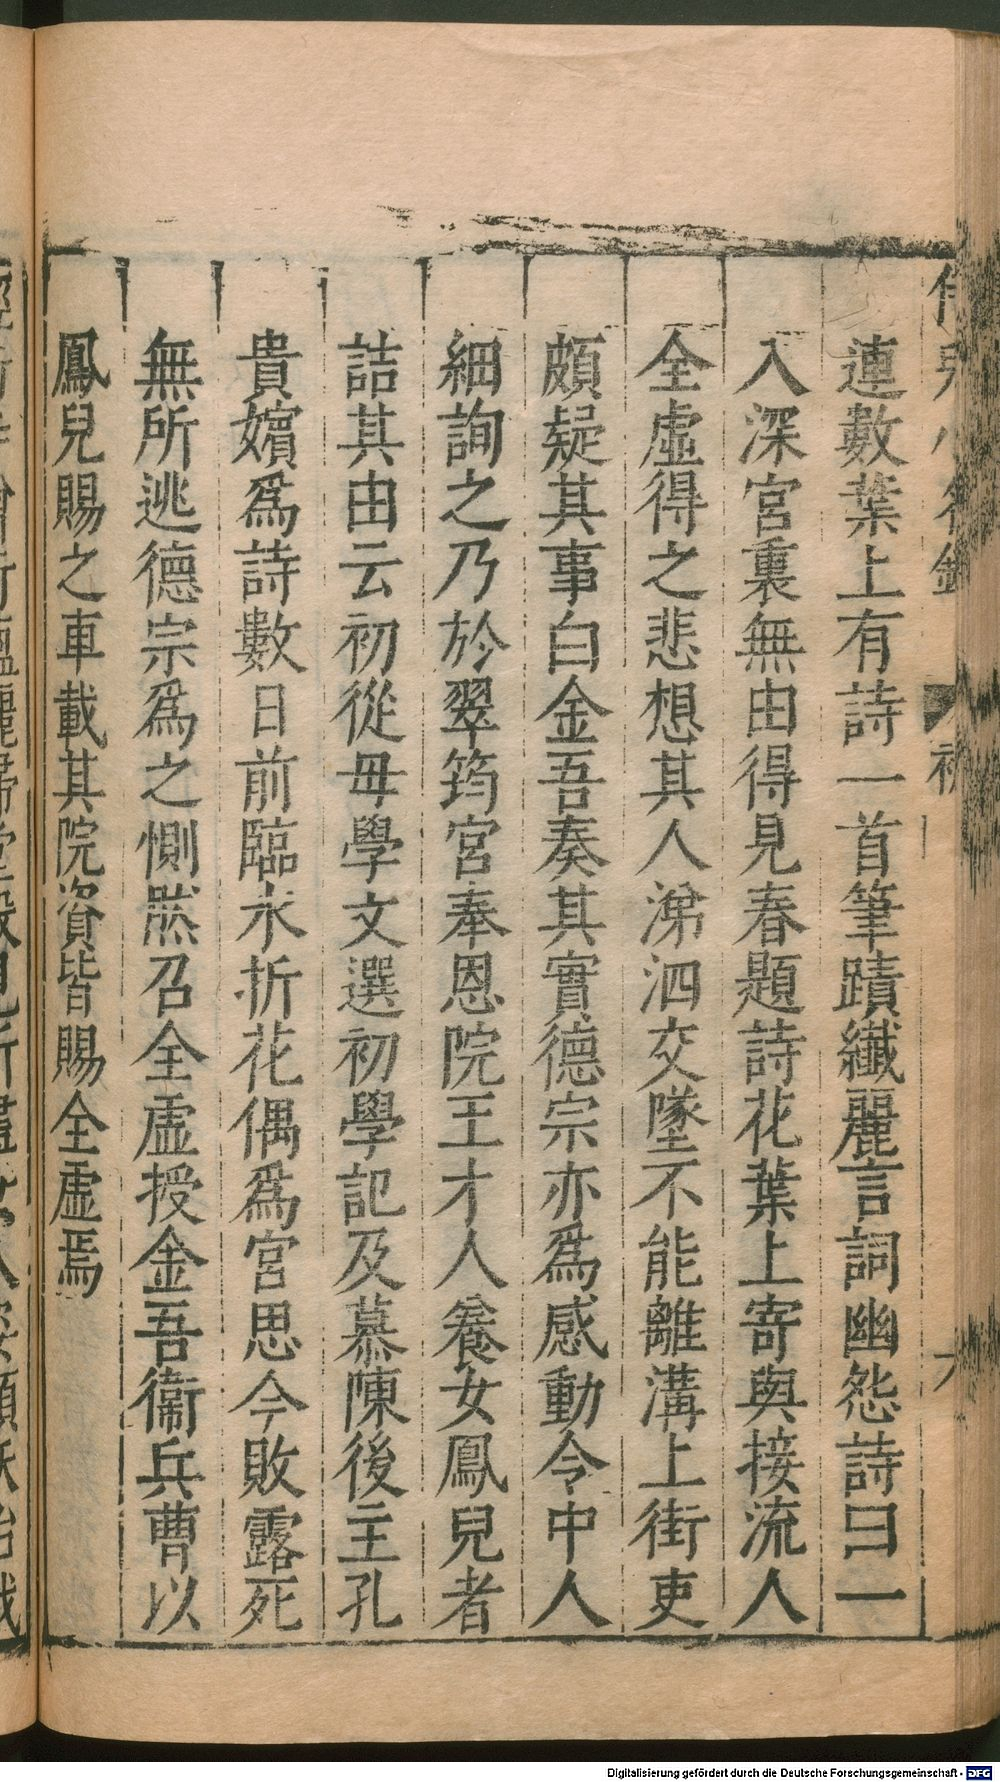 連數葉上有詩一首筆蹟纖麗言詞幽怨詩曰一
入深宮裏無由得見春題詩花葉上寄與接流人
全虛得之悲想其人涕泗交墜不能離溝上街吏
頗疑其事白金吾奏其實德宗亦爲感動令中人
細詢之乃於翠筠宮奉恩院王才人養女鳳兒者
詰其由云初從母學文選初學記及慕陳後主孔
貴嬪爲詩數日前臨水折花偶爲宮思今敗露死
無所逃德宗爲之惻然召全虛授金吾衞兵曹以
鳳兒賜之車載其院資皆賜全虛焉
Digitalisierung gefördert durch die Deutsche Forschungsgemeinschaft - DFG